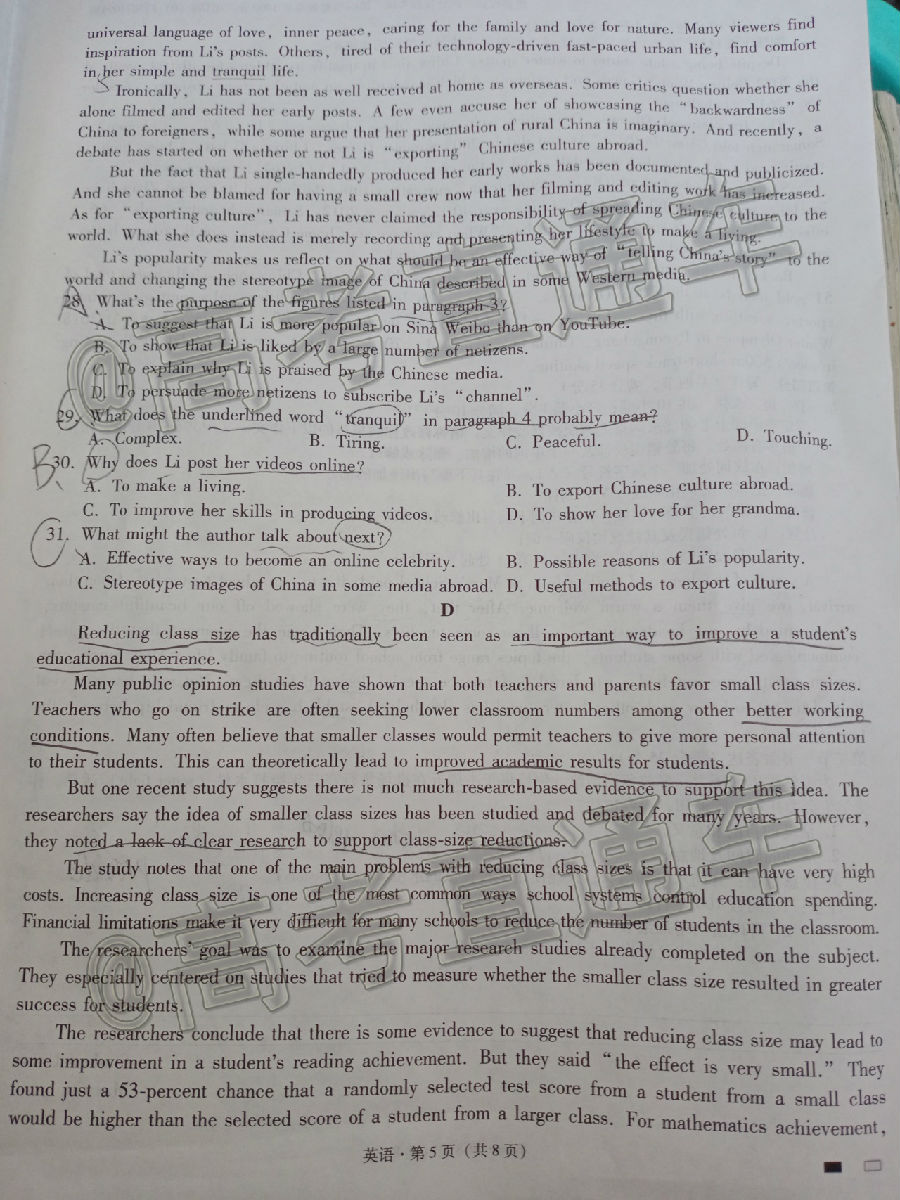 universal language of love, inner peace, caring for the family and love for nature. Many viewers find
inspiration from Li's posts. Others, tired of their technology-driven fast-paced urban life, find comfort
in her simple and tranquil life.
Ironically, Li has not been as well received at home as overseas. Some critics question whether she
alone filmed and edited her early posts. A few even accuse her of showcasing the "backwardness" of
China to foreigners, while some argue that her presentation of rural China is imaginary. And recently, a
debate has started on whether or not Li is "exporting" Chinese culture abroad.
But the fact that Li single-handedly produced her early works has been documented and publicized.
And she cannot be blamed for having a small crew now that her filming and editing work has increased.
As for "exporting culture", Li has never claimed the responsibility of spreading Chinese culture to the
world. What she does instead is merely recording and presenting her lifestyle to make a living.
Li's popularity makes us reflect on what should be an effective way of "telling China's story" to the
world and changing the stereotype image of China described in some Western media.
28. What's the purpose of the figures listed in paragraph 3?
A. To suggest that Li is more popular on Sina Weibo than on YouTube.
B. To show that Li is liked by a large number of netizens.
C. To explain why Li is praised by the Chinese media.
D. To persuade more netizens to subscribe Li's "channel".
29. What does the underlined word "tranquil" in paragraph 4 probably mean?
A. Complex. B. Tiring. C. Peaceful. D. Touching.
B 30. Why does Li post her videos online?
A. To make a living. B. To export Chinese culture abroad.
C. To improve her skills in producing videos. D. To show her love for her grandma.
31. What might the author talk about next?
A. Effective ways to become an online celebrity. B. Possible reasons of Li's popularity.
C. Stereotype images of China in some media abroad. D. Useful methods to export culture.
D
Reducing class size has traditionally been seen as an important way to improve a student's
educational experience.
Many public opinion studies have shown that both teachers and parents favor small class sizes.
Teachers who go on strike are often seeking lower classroom numbers among other better working
conditions. Many often believe that smaller classes would permit teachers to give more personal attention
to their students. This can theoretically lead to improved academic results for students.
But one recent study suggests there is not much research-based evidence to support this idea. The
researchers say the idea of smaller class sizes has been studied and debated for many years. However,
they noted a lack of clear research to support class-size reductions.
The study notes that one of the main problems with reducing class sizes is that it can have very high
costs. Increasing class size is one of the most common ways school systems control education spending.
Financial limitations make it very difficult for many schools to reduce the number of students in the classroom.
The researchers' goal was to examine the major research studies already completed on the subject.
They especially centered on studies that tried to measure whether the smaller class size resulted in greater
success for students.
The researchers conclude that there is some evidence to suggest that reducing class size may lead to
some improvement in a student's reading achievement. But they said "the effect is very small." They
found just a 53-percent chance that a randomly selected test score from a student from a small class
would be higher than the selected score of a student from a larger class. For mathematics achievement,
英语·第5页(共8页)
@高考直通车
@高考直通车